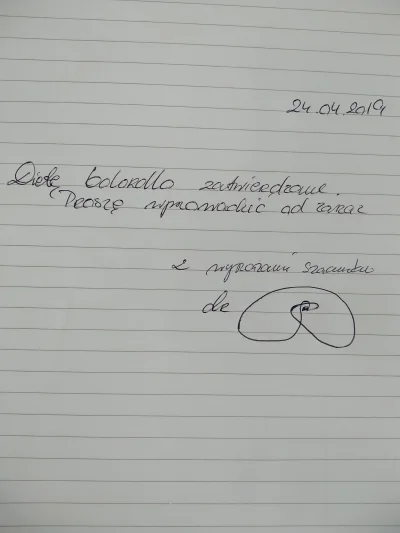 24.04.2019
zatwierdzone.
Proszę wprowadzić od zaraz
z wyrazami szacunku
de